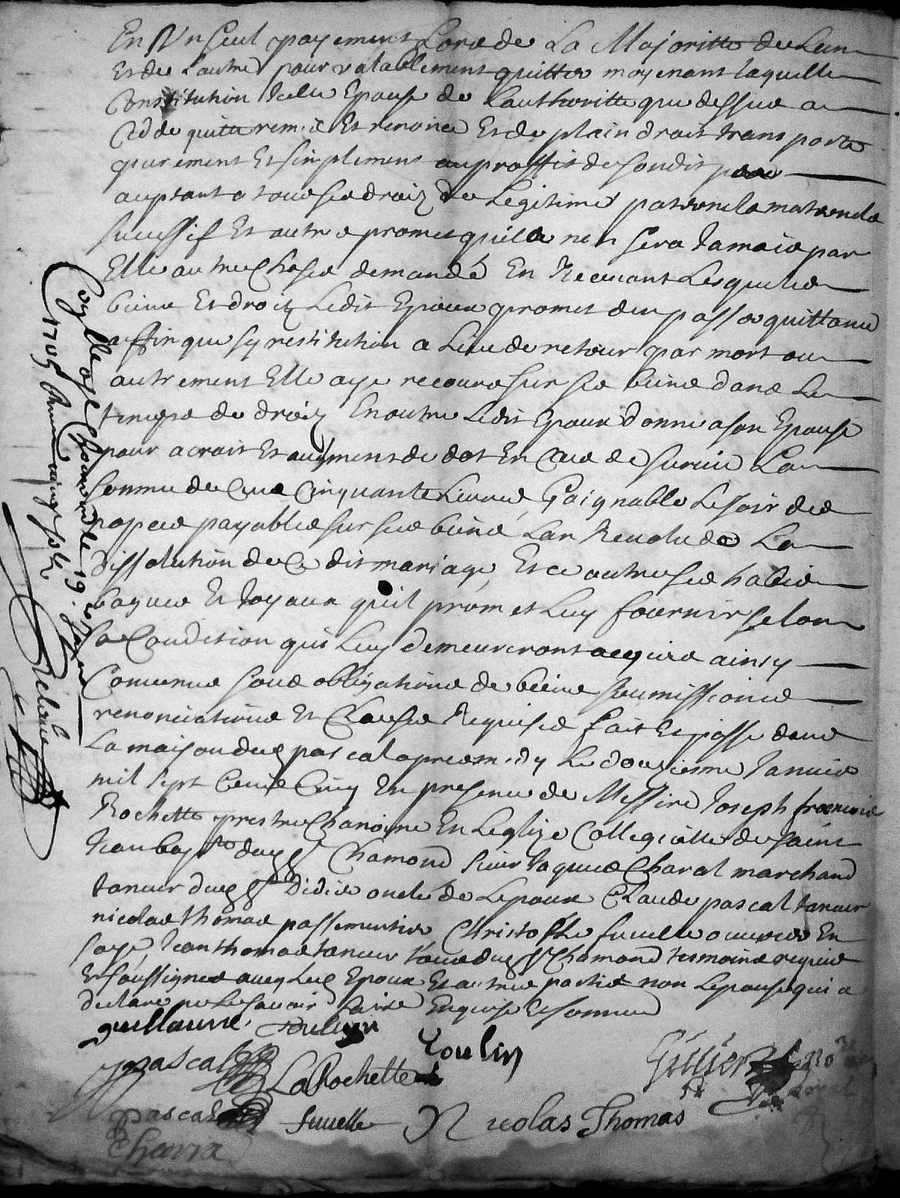 En Un seul payement Lors de La Majoritté de Lun
Et de Lautre pour valablement quitter moyenant laquelle
Constitution Ladte Epouse de Lauthoritté que dessus a
Cedde quitte remis Et renoncé Et de plain droit transporté
purement Et simplement au proffit de sondit pere
acceptant tous ses droiz de Legitime paternels maternels
successif Et autres promet quil ne sera Jamais par
Elle autre Chose demandé En Recevant Lesquels
biens Et droiz Ledit Epoux promet den passer quittance
affin que sy restitution a Lieu de retour par mort ou
autrement Elle aye recours sur ses biens dans Le
temps de droiz En outre Ledit Epoux donne a son Epouse
pour acroit Et augment de dot En Cas de survie La
somme de Cent Cinquante Livres Gaignable Le soir des
nopces payable sur ses biens Lan Revolu de La
Dissolution de Ce dit mariage, Et ce outre ses habis
bagues Et Joyaux quil promet Luy fournir selon
sa Condition qui Luy demeureront acquis ainsy
Convenu sous obligations de biens soumissions
renonciations Et Clauses Requises fait Et passé dans
La maison dud pascal apres midy Le douzieme Janvier
mil sept Cents Cinq En presence de Messire Joseph francois
Rochette prestre Chanoine En Leglize Collegialle de saint
Jean bapte dud st Chamond sieur Jaques Charat marchand
taneur dud st Didier oncle de Lepoux Claude pascal taneur
nicolas thomas passementier Christophle fuvelle ouvrier En
soye, Jean thomas taneur tous dud st Chamond tesmoins requis
Et soussignes avec Led Epoux Et autres parties non Lepouse qui a
declare ne Le savoir faire Enquise Et sommée
guillaume. Joulin
Joulin
pascal
La Rochette
Gillier
pascal
fuvelle
Nicolas Thomas
Charra
Conllé a st Chamond le 19. Janvier
1705 Receu vingt sols